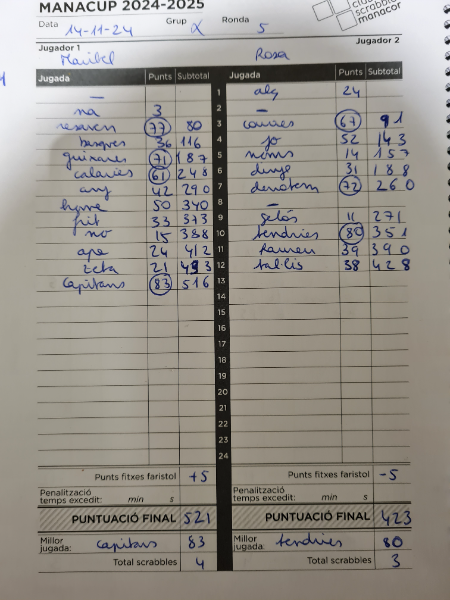 MANACUP 2024-2025
club scrabble manacor
Data 14-11-24 Grup α Ronda 5
Jugador 1 Jugador 2
Maribel Rosa
Jugada Punts Subtotal Jugada Punts Subtotal
— 1 alç 24
na 3 2 —
77 80 3 67 91
basques 36 116 4 jo 52 143
guixares 71 187 5 noms 14 157
calaries 61 248 6 dinye 31 188
any 42 290 7 denotem 72 260
hyme 50 340 8 —
frit 33 373 9 gelós 11 271
no 15 388 10 tendries 80 351
apa 24 412 11 39 390
zeta 21 433 12 tal·lis 38 428
capitans 83 516 13
14
15
16
17
18
19
20
21
22
23
24
Punts fitxes faristol +5 Punts fitxes faristol -5
Penalització temps excedit: min s Penalització temps excedit: min s
PUNTUACIÓ FINAL 521 PUNTUACIÓ FINAL 423
Millor jugada: capitans 83 Millor jugada: tendries 80
Total scrabbles 4 Total scrabbles 3